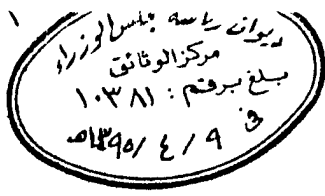 ١
ديوان رياسة مجلس الوزراء
مركز الوثائق
بلغ برقم : ١٠٣٨١
في ٩ / ٤ / ١٣٩٥هـ